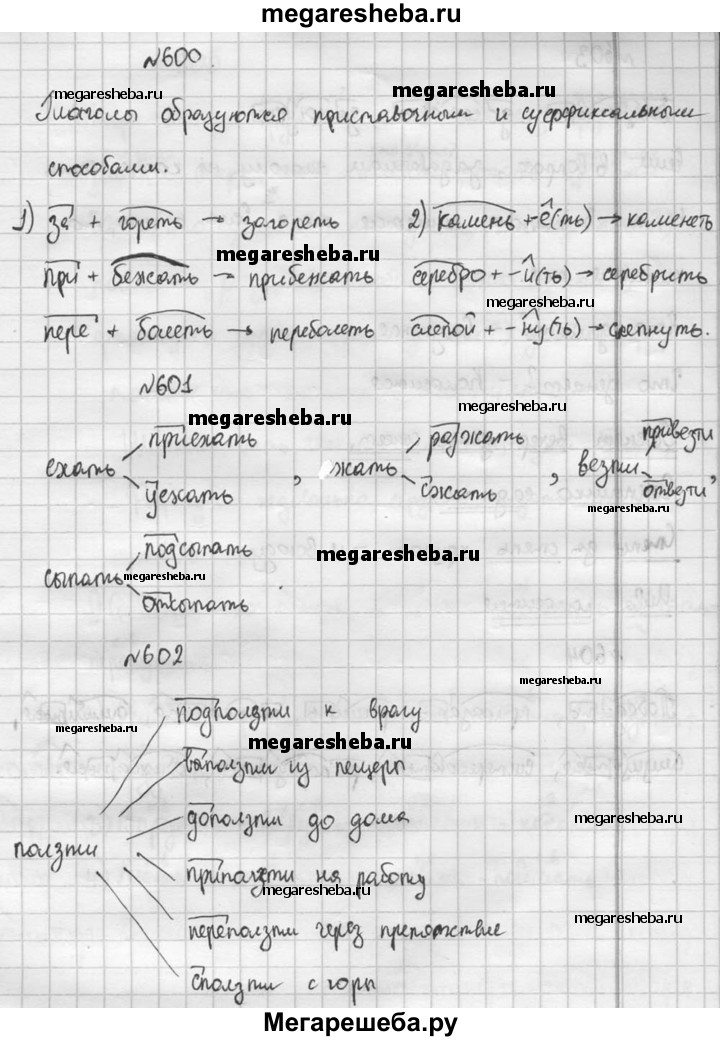 megaresheba.ru
№600.
megaresheba.ru
megaresheba.ru
Глаголы образуются приставочным и суффиксальными
способами.
1) за + гореть → загореть 2) камень + е(ть) → каменеть
megaresheba.ru
при + бежать → прибежать серебро + -и(ть) → серебрить
megaresheba.ru
пере + болеть → переболеть слепой + -ну(ть) → слепнуть.
№601
megaresheba.ru
megaresheba.ru
ехать приехать уехать , жать разжать сжать , везти привезти отвезти ,
megaresheba.ru
сыпать подсыпать отсыпать .
megaresheba.ru
megaresheba.ru
№602
megaresheba.ru
ползти
подползти к врагу
megaresheba.ru
megaresheba.ru
выползти из пещеры
доползти до дома
megaresheba.ru
приползти на работу
megaresheba.ru
переползти через препятствие
megaresheba.ru
сползти с горы
Мегарешеба.ру